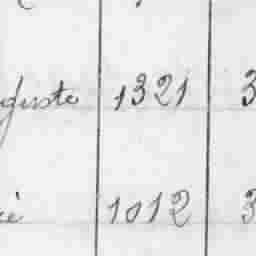 guste 1321 3
1012 3